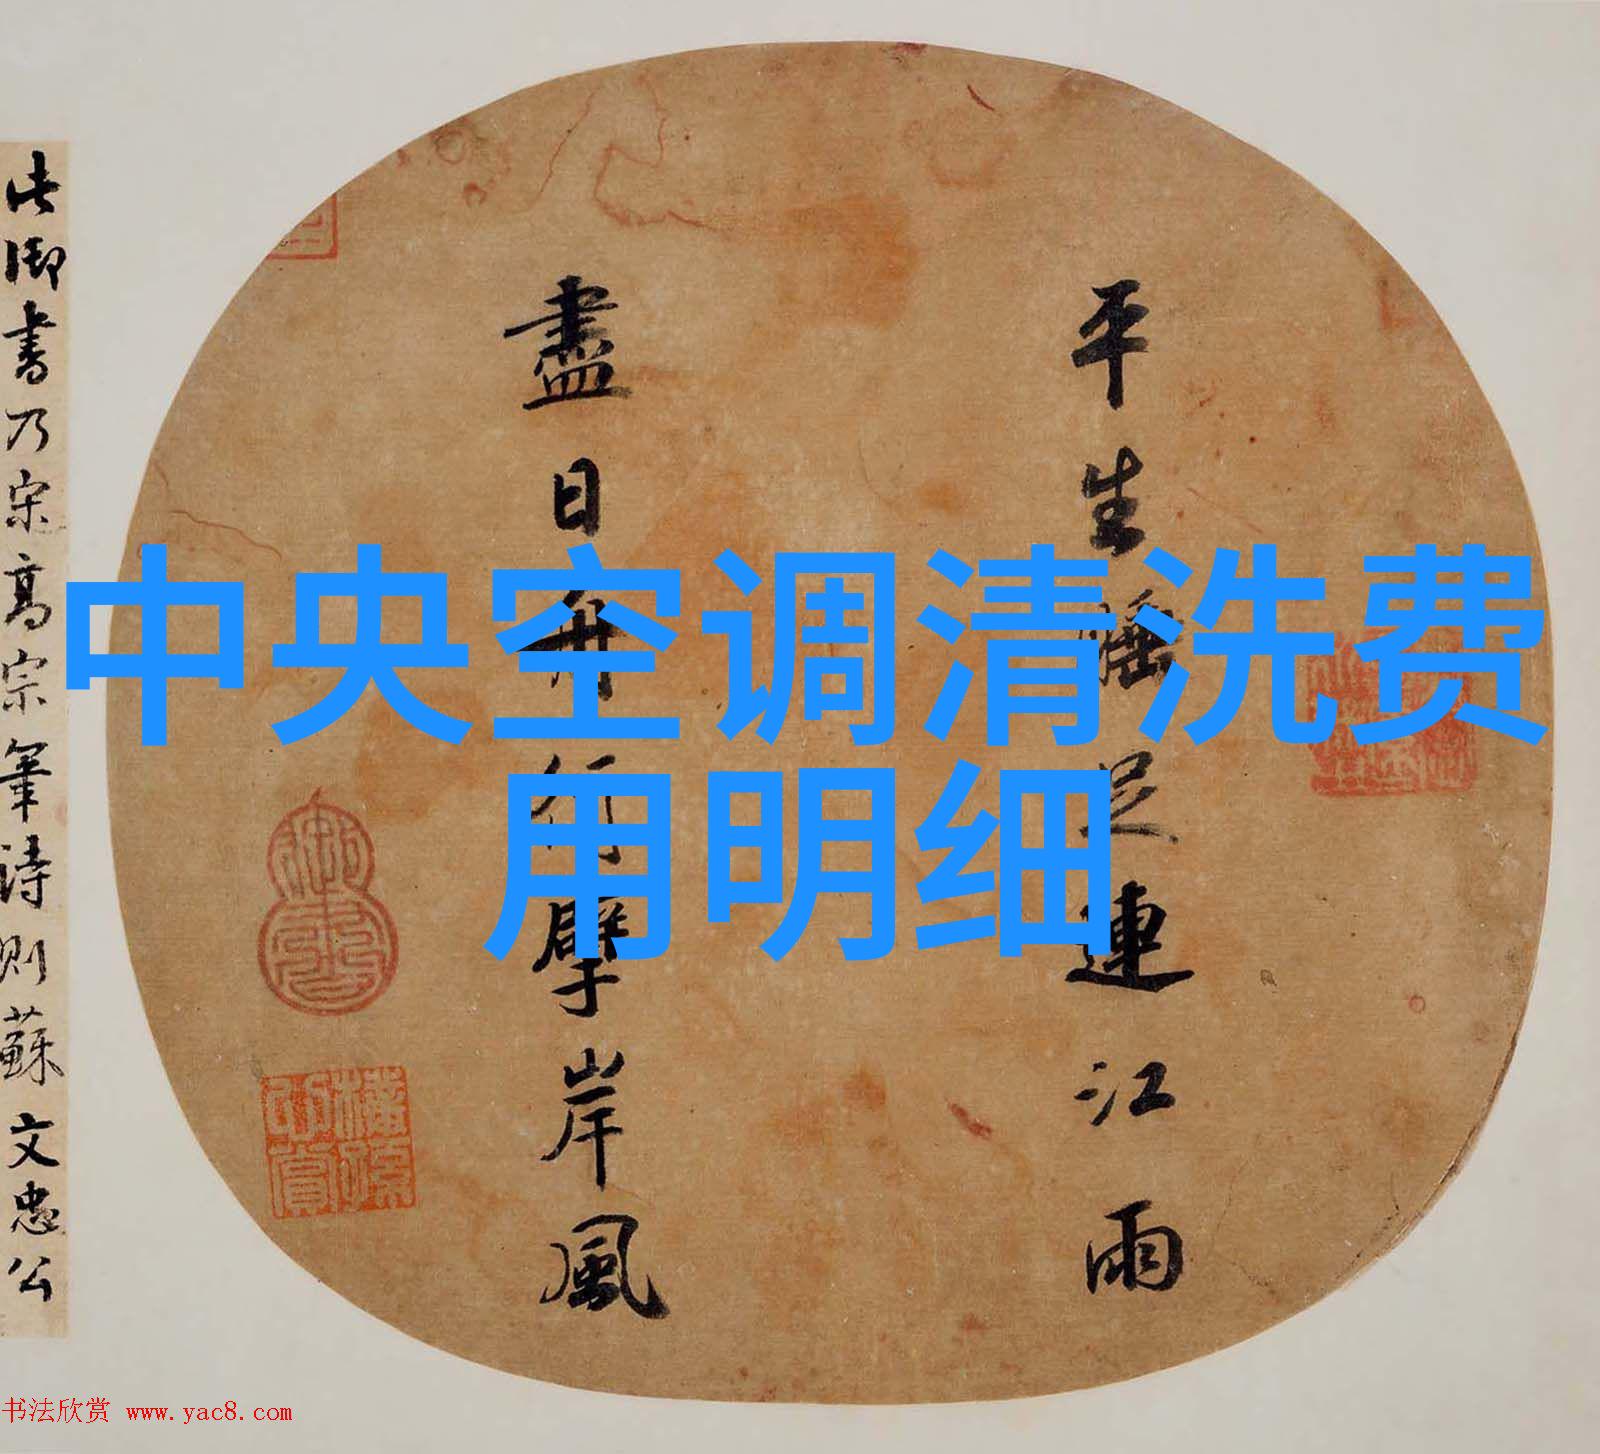 中央空调清洗费
用明细
平生睡足連江雨
盡日舟行擘岸風
此御書乃宋高宗筆詩則蘇文忠公
书法欣赏 www.yac8.com